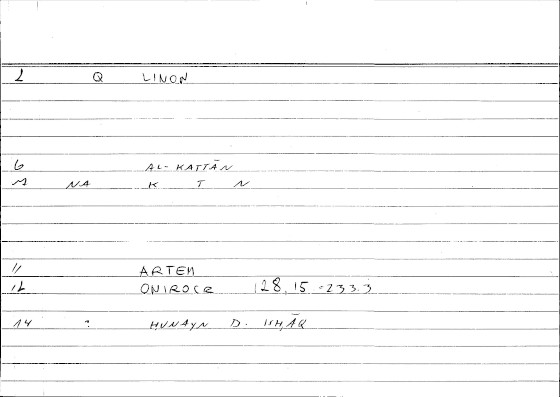 2 Q LINON
6 AL-KATTĀN
M NA K T N
11 ARTEM
12 ONIROCR 128,15-233.3
14 : ḤUNAYN D. ISḤĀQ